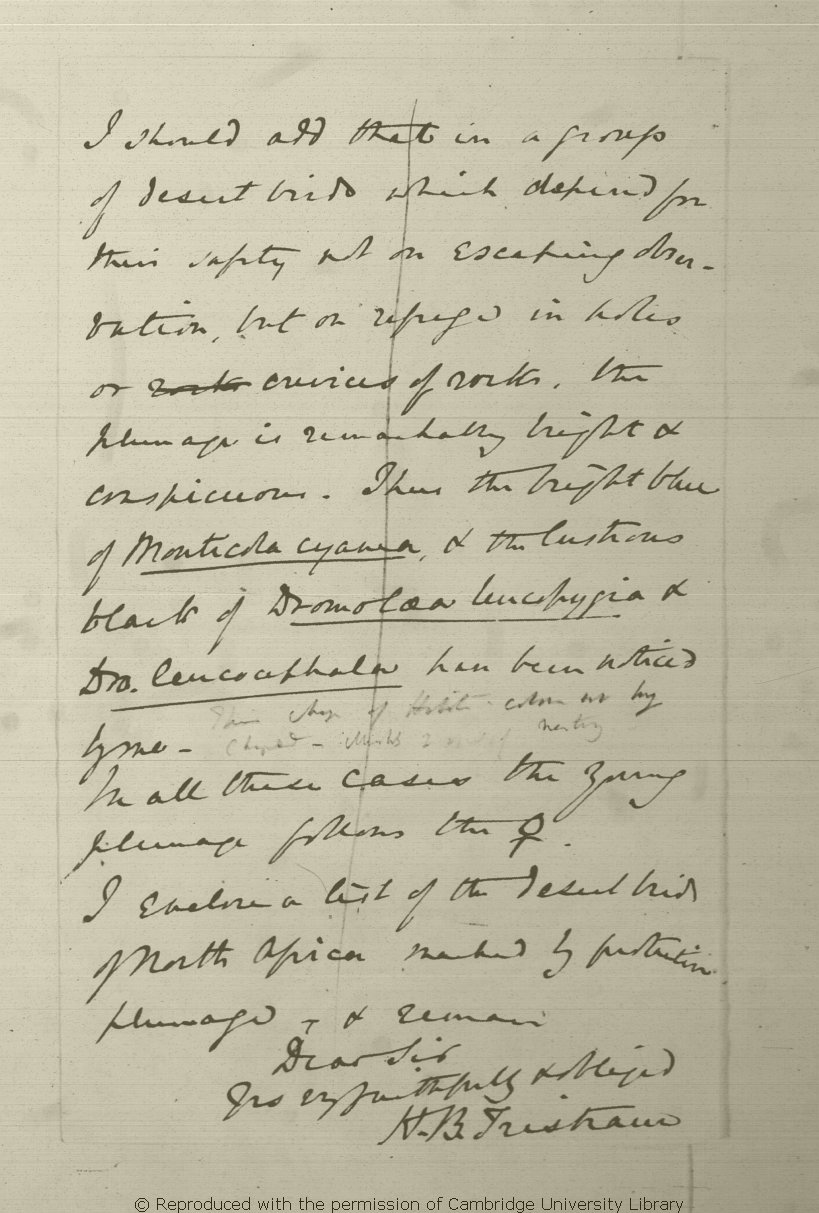 I should add that in a group
of desert birds which depend for
their safety not on escaping obser-
vation, but on refuge in holes
or rocks crevices of rocks, the
plumage is remarkably bright &
conspicuous. Thus the bright blue
of Monticola cyanea, & the lustrous
black of Dromolæa leucopygia &
Dro. leucocephala has been noticed
by me –
In all these cases the young
plumage follows the ♀.
I enclose a list of the desert birds
of North Africa marked by protective
plumage – & remain
Dear Sir
Yrs very faithfully & obliged
H. B. Tristram
© Reproduced with the permission of Cambridge University Library